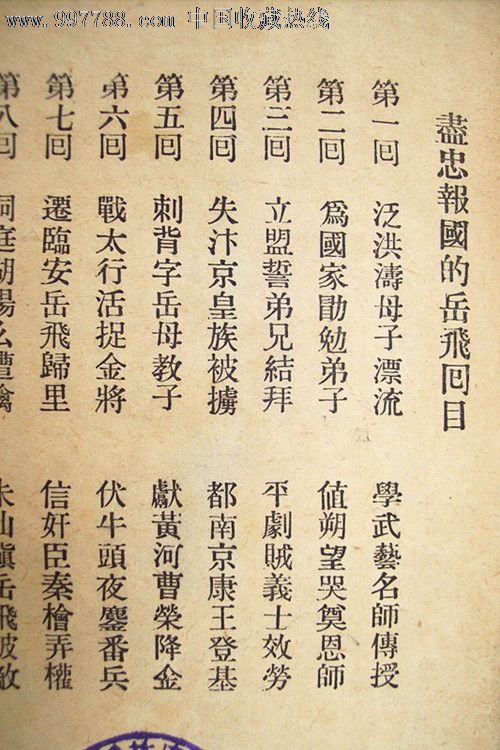 www.997788.com 中国收藏热线
盡忠報國的岳飛回目
第一回 泛洪濤母子漂流 學武藝名師傳授
第二回 爲國家勖勉弟子 值朔望哭奠恩師
第三回 立盟誓弟兄結拜 平劇賊義士效勞
第四回 失汴京皇族被擄 都南京康王登基
第五回 刺背字岳母教子 獻黃河曹榮降金
第六回 戰太行活捉金將 伏牛頭夜鏖番兵
第七回 遷臨安岳飛歸里 信奸臣秦檜弄權
第八回 洞庭湖楊么遭擒 朱仙鎭岳飛破敵